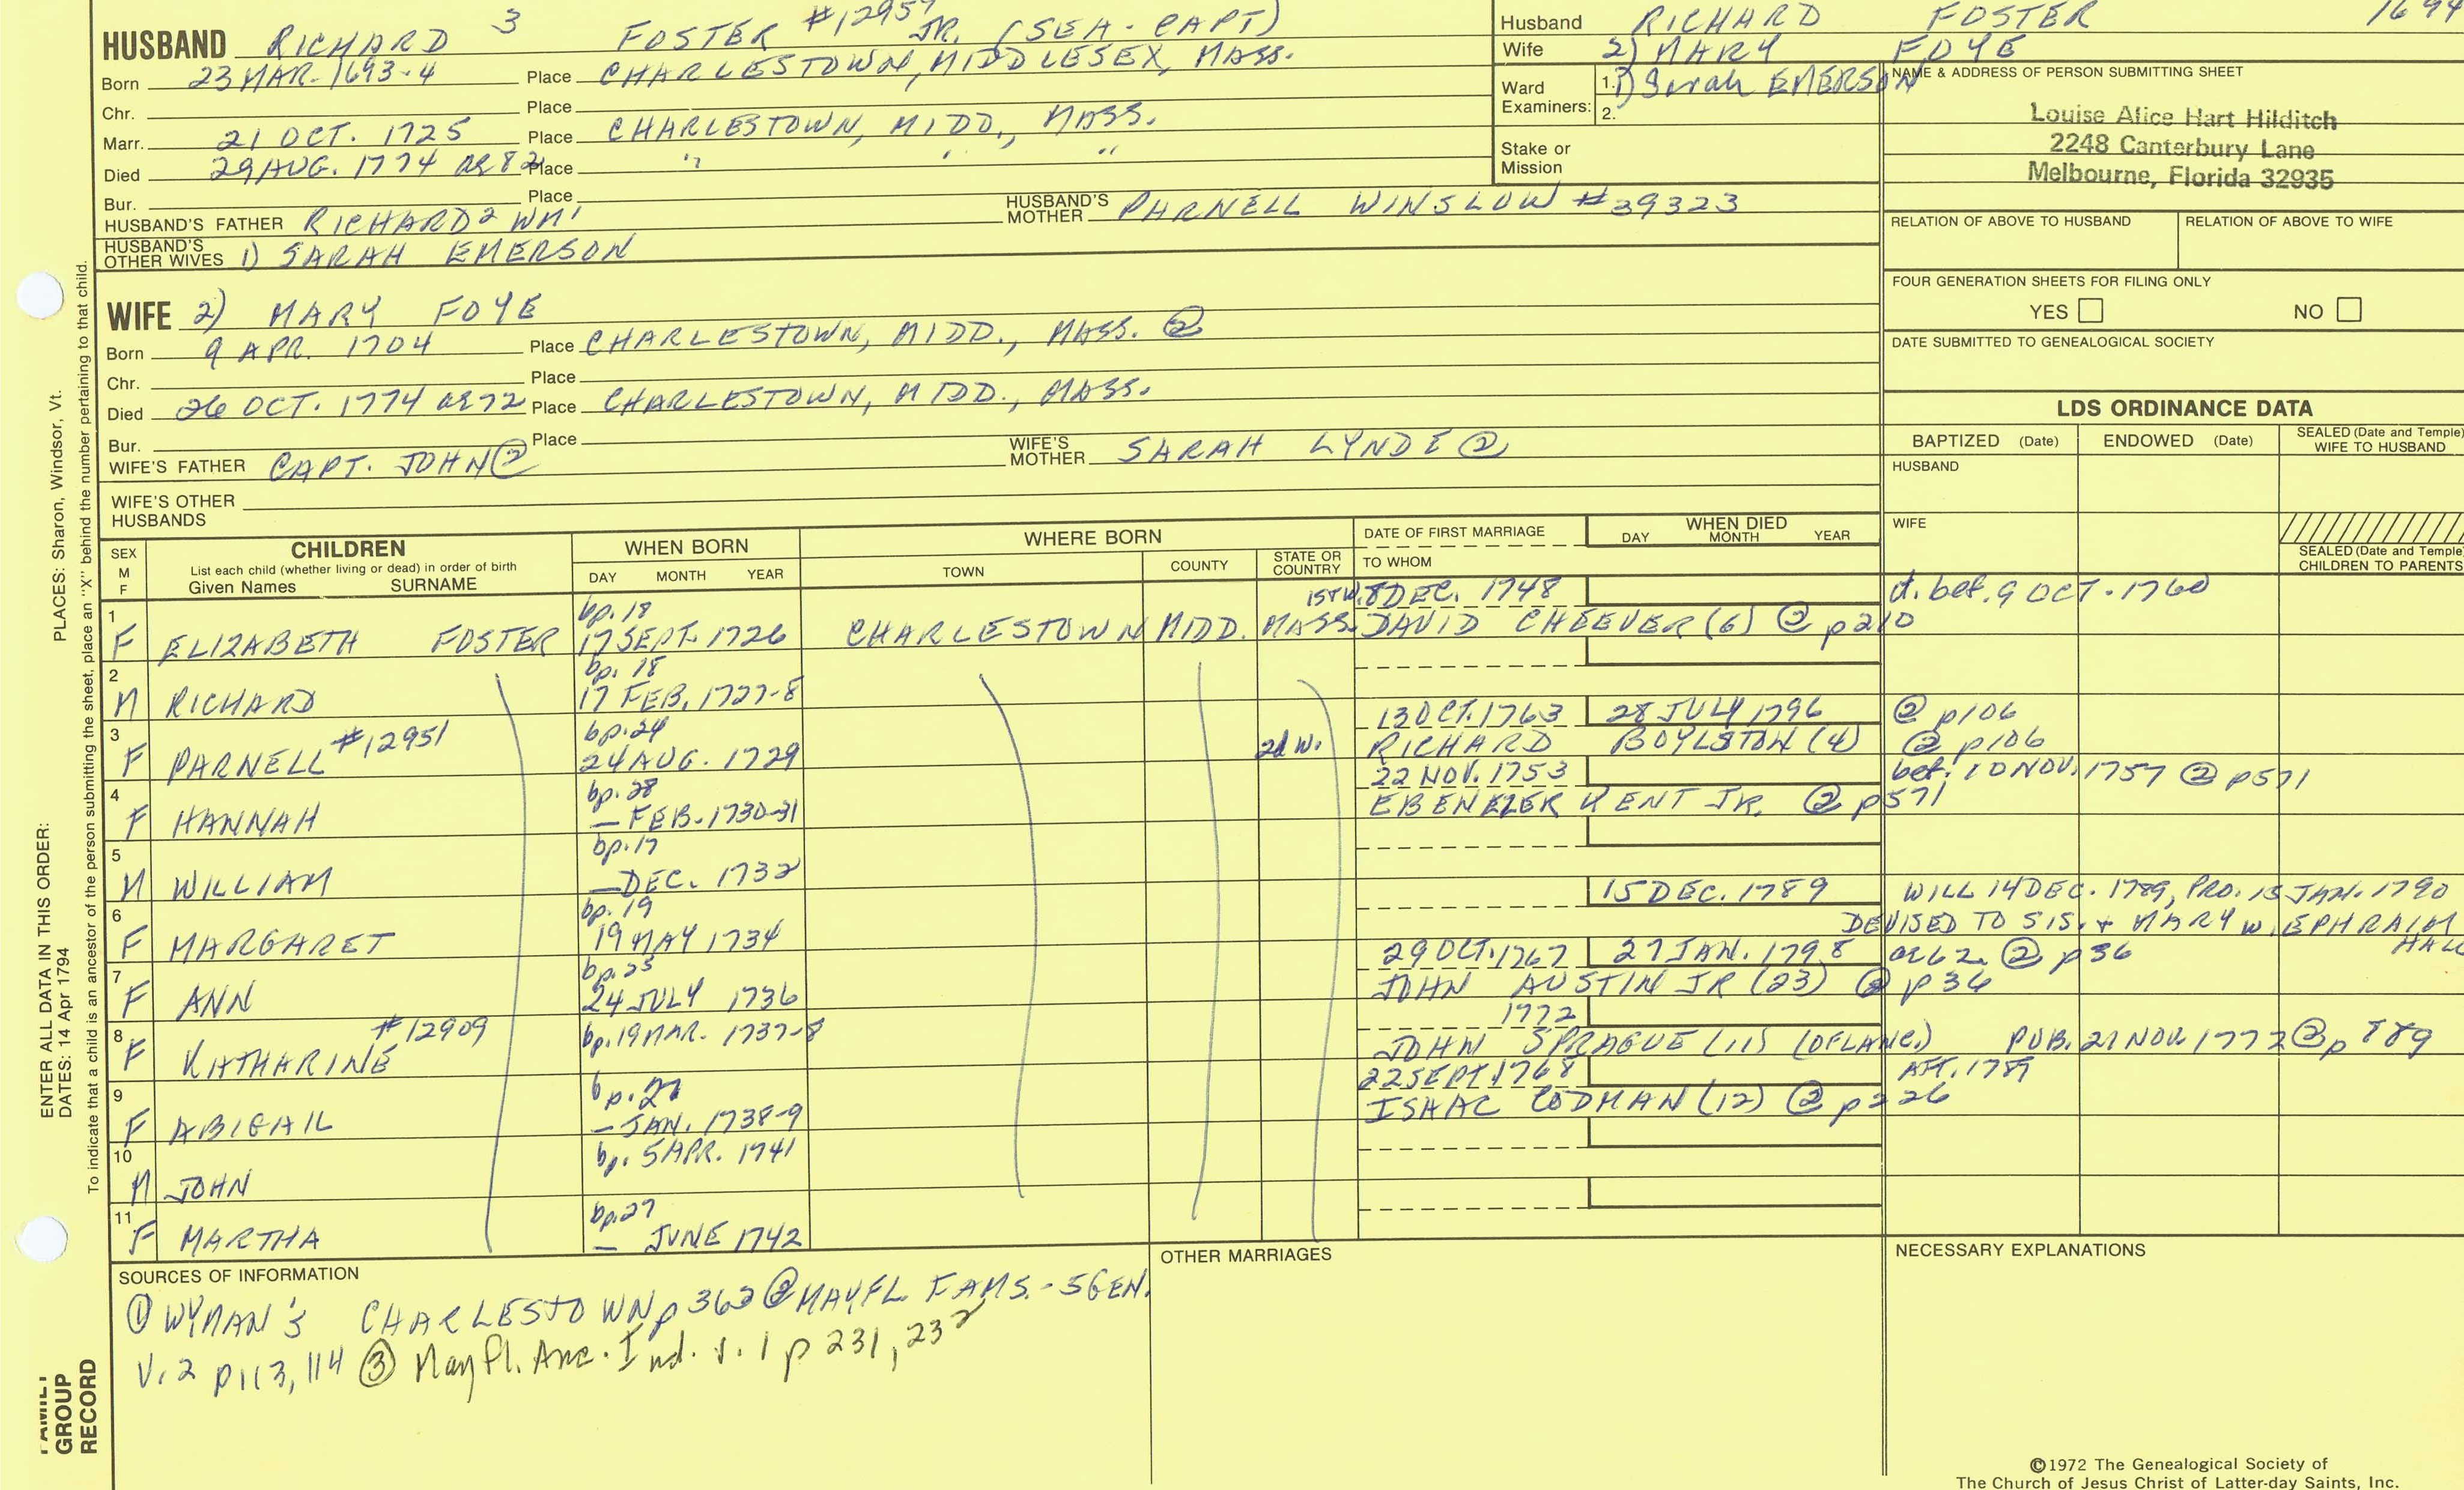 HUSBAND RICHARD 3 FOSTER #12957 JR. (SEA-CAPT)
Born 23 MAR. 1693-4 Place CHARLESTOWN, MIDDLESEX, MASS.
Chr. Place
Marr. 21 OCT. 1725 Place CHARLESTOWN, MIDD., MASS.
Died 29 AUG. 1774 AE 82 Place " " "
Bur. Place
HUSBAND'S FATHER RICHARD2 WM1 HUSBAND'S MOTHER PARNELL WINSLOW #39323
HUSBAND'S OTHER WIVES 1) SARAH EMERSON
Husband RICHARD FOSTER 1694
Wife 2) MARY FOYE
Ward Examiners: 1. 1) Sarah EMERSON
2.
Stake or Mission
NAME & ADDRESS OF PERSON SUBMITTING SHEET
Louise Alice Hart Hilditch
2248 Canterbury Lane
Melbourne, Florida 32935
RELATION OF ABOVE TO HUSBAND RELATION OF ABOVE TO WIFE
FOUR GENERATION SHEETS FOR FILING ONLY
YES NO
DATE SUBMITTED TO GENEALOGICAL SOCIETY
WIFE 2) MARY FOYE
Born 9 APR. 1704 Place CHARLESTOWN, MIDD., MASS. ②
Chr. Place
Died 26 OCT. 1774 AE 72 Place CHARLESTOWN, MIDD., MASS.
Bur. Place
WIFE'S FATHER CAPT. JOHN ② WIFE'S MOTHER SARAH LYNDE ②
WIFE'S OTHER HUSBANDS
LDS ORDINANCE DATA
BAPTIZED (Date) ENDOWED (Date) SEALED (Date and Temple) WIFE TO HUSBAND
HUSBAND
WIFE
SEALED (Date and Temple) CHILDREN TO PARENTS
SEX M F CHILDREN List each child (whether living or dead) in order of birth Given Names SURNAME
WHEN BORN DAY MONTH YEAR
WHERE BORN TOWN COUNTY STATE OR COUNTRY
DATE OF FIRST MARRIAGE TO WHOM
WHEN DIED DAY MONTH YEAR
bp. 18 1ST W. 8 DEC. 1748 d. bef. 9 OCT. 1760
1 F ELIZABETH FOSTER 17 SEPT. 1726 CHARLESTOWN MIDD. MASS. DAVID CHEEVER (6) ② p210
bp. 18
2 M RICHARD 17 FEB. 1727-8
bp. 24 13 OCT. 1763 28 JULY 1796 ② p106
3 F PARNELL #12951 24 AUG. 1729 2d W. RICHARD BOYLSTON (4) ② p106
bp. 28 22 NOV. 1753 bef. 10 NOV. 1757 ② p571
4 F HANNAH — FEB. 1730-31 EBENEZER KENT JR. ② p571
bp. 17
5 M WILLIAM — DEC. 1732
bp. 19 15 DEC. 1789 WILL 14 DEC. 1789, PRO. 15 JAN. 1790
6 F MARGARET 19 MAY 1734 DEVISED TO SIS. + MARY w. EPHRAIM HALL
bp. 25 29 OCT. 1767 27 JAN. 1798 AE 62 ② p36
7 F ANN 24 JULY 1736 JOHN AUSTIN JR (23) ② p36
#12909 1772
8 F KATHARINE bp. 19 MAR. 1737-8 JOHN SPRAGUE (11) (OF LANC.) PUB. 21 NOV 1772 ② p 889
bp. 22 SEPT. 1768 AFT. 1789
9 F ABIGAIL — JAN. 1738-9 ISAAC CODMAN (12) ② p226
10 M JOHN bp. 5 APR. 1741
bp. 27
11 F MARTHA — JUNE 1742
SOURCES OF INFORMATION
① WYMAN'S CHARLESTOWN p 363 ② MAYFL. FAMS. - 5 GEN.
V. 2 p113, 114 ③ Mayfl. Anc. Ind. v. 1 p 231, 232
OTHER MARRIAGES
NECESSARY EXPLANATIONS
©1972 The Genealogical Society of
The Church of Jesus Christ of Latter-day Saints, Inc.
PLACES: Sharon, Windsor, Vt.
ENTER ALL DATA IN THIS ORDER:
DATES: 14 Apr 1794
To indicate that a child is an ancestor of the person submitting the sheet, place an "X" behind the number pertaining to that child.
FAMILY
GROUP
RECORD